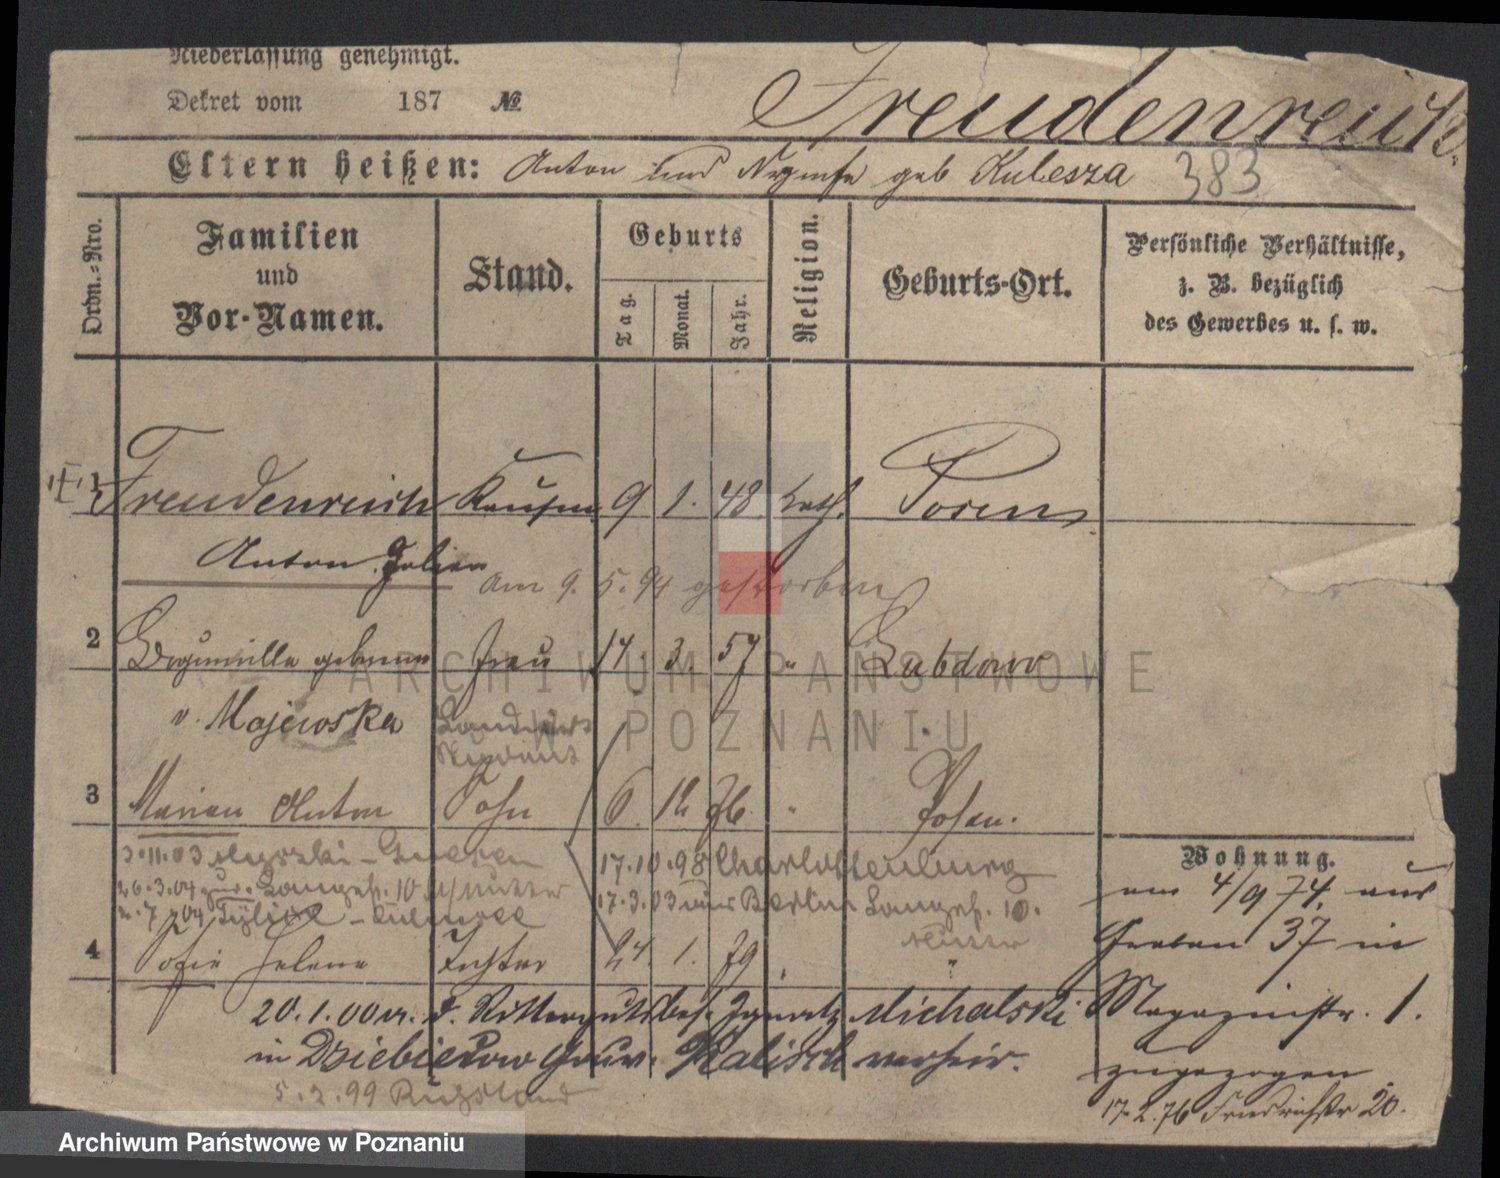 Niederlassung genehmigt.
Dekret vom 187 №
Freudenreich.
Eltern heißen: Anton und geb Kulesza 383
Ordn.-Nro.
Familien und Vor-Namen.
Stand.
Geburts
Tag.
Monat.
Jahr.
Religion.
Geburts-Ort.
Persönliche Verhältnisse, z. B. bezüglich des Gewerbes u. s. w.
1 Freudenreich Kaufm. 9 1. 48 kath. Posen
Anton Julian
am 9. 5. 94 gestorben
2 geborene Frau 14. 3. 57 " Lubdowo
v. Majewska
3 Marian Anton Sohn 6. 12 76. " Posen.
Wohnung.
3.11.03 - Gnesen 17.10.98 Charlottenburg
26.3.04 Langestr. 10 Mutter 17.3.03 aus Berlin Langestr. 10.
Mutter
2.7.04
4 Sofie Helene Tochter 24. 1. 79 "
am 4/9 74. aus
Graben 37 in
Magazinstr. 1.
zugezogen
17.2.76 Friedrichstr 20.
20.1.00 m. d. Rittergutsbes. Ignatz Michalski
in Dziebierow Gouv. Kalisch verheir.
5.2.99 Russland
ARCHIWUM PAŃSTWOWE
W POZNANIU
Archiwum Państwowe w Poznaniu